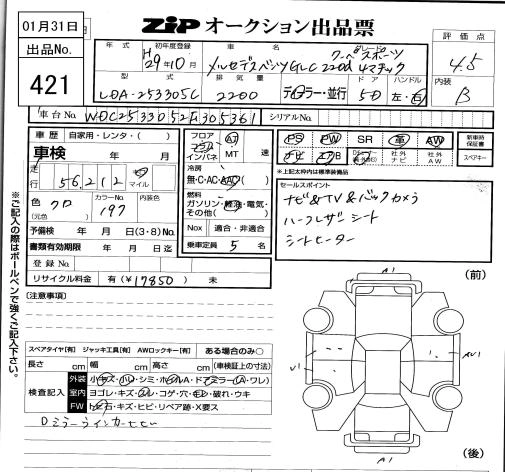 01月31日
ZIP オークション出品票
出品No.
421
年式 初年度登録 車名 グレード
H29年10月 メルセデスベンツGLC 220d 4マチック クーペスポーツ
評価点
4.5
型式 排気量 ドア ハンドル
LDA-253305C 2200 ディーラー・並行 5D 左・右
内装
B
車台No. WDC2533052F305361 シリアルNo.
車歴 自家用・レンタ・( )
車検 年 月
走行 56,212 km マイル
色 クロ (元色) カラーNo. 197 内装色
予備検 年 月 日(3・8)No.
書類有効期限 年 月 日迄
登録No.
リサイクル料金 有(¥17850) 未
フロア コラム インパネ AT MT 速
冷房 無・C・AC・AAC
燃料 ガソリン・軽油・電気・その他( )
Nox 適合・非適合
乗車定員 5 名
PS PW SR 革 AW
ナビ エアB 社外ナビ 社外AW
新車時保証書
スペアキー
*上記太枠内は標準装備品
セールスポイント
ナビ&TV&バックカメラ
ハーフレザーシート
シートヒーター
※ご記入の際はボールペンで強くご記入下さい。
(注意事項)
スペアタイヤ[有] ジャッキ工具[有] AWロックキー[有] ある場合のみ○
長さ cm 幅 cm 高さ cm (車検証上の寸法)
検査記入
外装 小キズ・小凹・シミ・ホイルA・ドアミラー(A・ワレ)
室内 ヨゴレ・キズ・スレ・コゲ・穴・モレ・破れ・ウキ
FW トビ石・キズ・ヒビ・リペア跡・X要ス
Dミラーウインカーヒビ
(前)
A1
U1
AU1
A1
(後)